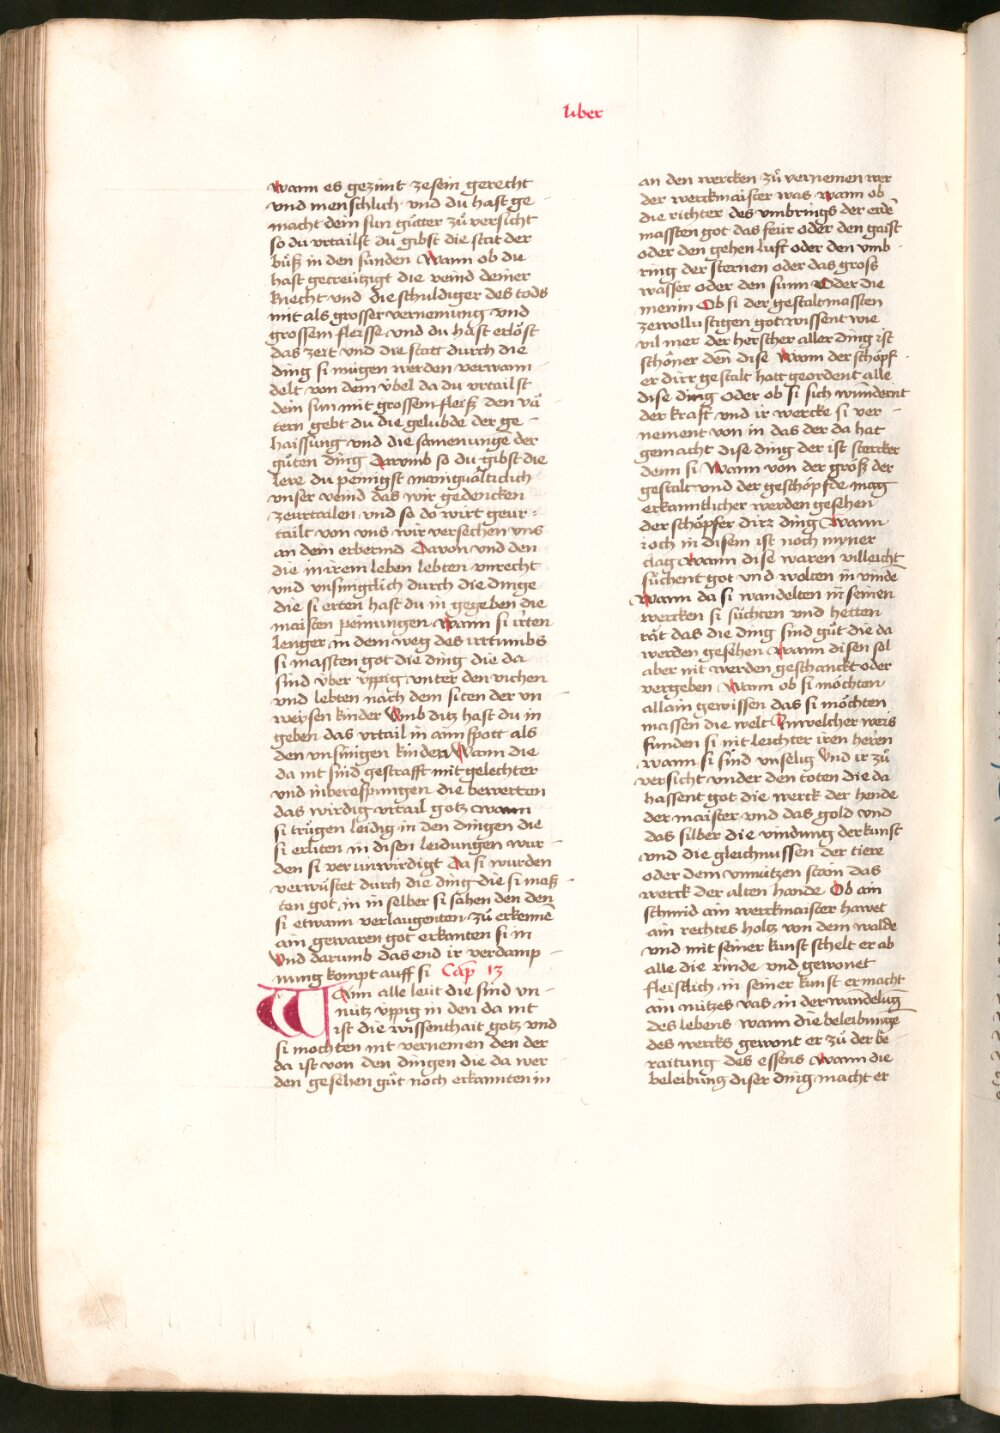 liber
wann es gezimt zesein gerecht
vnd menschlich · vnd du hast ge
macht dein sun gůtter zů versicht
so du vrtailst du gibst die stat der
bůß in den sunden Wann ob du
hast gecreutzigt die veind deiner
knecht vnd die schuldiger des tods
mit als grosser vernemung vnd
grossem fleisse vnd du hast erlöst
das zeit vnd die statt durch die
ding si mügen werden verwann
delt von dem v̈bel da du vrtailst
dein sun mit grossem fleiß den vä
tern gebt du die gelubde der ge
haissung vnd die samenunge der
gůten ding Darumb so du gibst die
lere du peinigst manigualticlich
vnser veind das wir gedencken
zeurtailen vnd so do wirt geur
tailt von vns wir versechen vns
an dein erbermd Dauon vnd den
die in irem leben lebten vnrecht
vnd vnsinigclich durch die dinge
die si erten hast du in gegeben die
maisten peinungen wann si irten
lenger in dem weg des irrtumbs
si massten got die ding die da
sind v̈ber v̈ppig vnter den vichen
vnd lebten nach dem siten der vn
weysen kinder Vmb ditz hast du in
geben das vrtail in ain spott als
den vnsinigen kindern Wann die
da nit sind gestrafft mit gelechter
vnd mberesspungen die bewerten
das wirdig vrtail gotz wann
si trůgen leidig in den dingen die
si erliten in disen leidungen wur
den si ver vnwirdigt Da si wurden
verwüstet durch die ding die si maß
ten got in in selber si sahen den den
si etwann verlaugenten zů erkennē
ain gewaren got erkanten si in
Vnd darumb das end ir verdamp
nung kompt auff si Cap̄ 13
WAnn alle leüt die sind vn
nütz v̈ppig in den da nit
ist die wissenthait gotz vnd
si mochten nit vernemen den der
da ist von den dingen die da wer
den gesehen gůt noch erkannten in
an den wercken zů vernemen wer
der werckmaister was wann ob
die richter des vmbrings der erdē
massten got das feür oder den gaist
oder den gehen luft oder den vmb
ring der sternen oder das groß
wasser oder den sunn Oder die
menin Ob si der gestalt massten
zewollustigen got wissent wie
vil mer der herscher aller ding ist
schöner deñ dise Wann der schöpf
er dirr gestalt hatt geordent alle
dise ding oder ob si sich wundernt
der kraft vnd ir wercke si ver
nement von in das der da hat
gemacht dise ding der ist stercker
denn si Wann von der größ der
gestalt vnd der geschöpfde mag
erkanntlicher werden gesehen
der schöpfer dirz ding Wann
ioch in disem ist noch myner
clag Wann dise waren villeicht
sůchent got vnd wolten in vindē
Wann da si wandelten in seinen
wercken si sůchten vnd hetten
rät das die ding sind gůt die da
werden gesehen Wann disen sol
aber nit werden geschanckt oder
vergeben Wann ob si möchten
allain gewissen das si möchten
massen die welt Inwelcher weis
funden si nit leuchter iren herrn
wann si sind vnselig Vnd ir zů
versicht vnder den toten die da
hassent got die werck der hende
der maister vnd das gold vnd
das silber die vindung der kunst
vnd die gleichnussen der tiere
oder dem vnnutzen stain das
werck der alten hande Ob ain
schmid ain werckmaister hawet
ain rechtes holtz von dem walde
vnd mit seiner kunst schelt er ab
alle die rinde vnd gewonet
fleislich in seiner kunst er macht
ain nützes vas in der wandelūg
des lebens wann die beleibunge
des wercks gewont er zů der be
raitung des essens Wann die
beleibung diser ding macht er